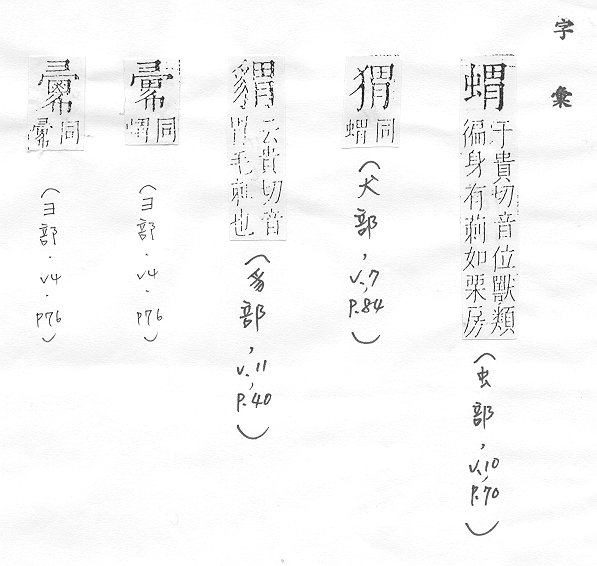 字彙
蝟
于貴切音位獸類
徧身有莿如栗房
(虫部, v.10, P.70)
猬
同
蝟
(犬部, v.7, P.84)
云貴切音
胃毛莿也
(豸部, v.11, P.40)
同
蝟
(彐部.v4.P76)
同
(彐部.v4.P76)